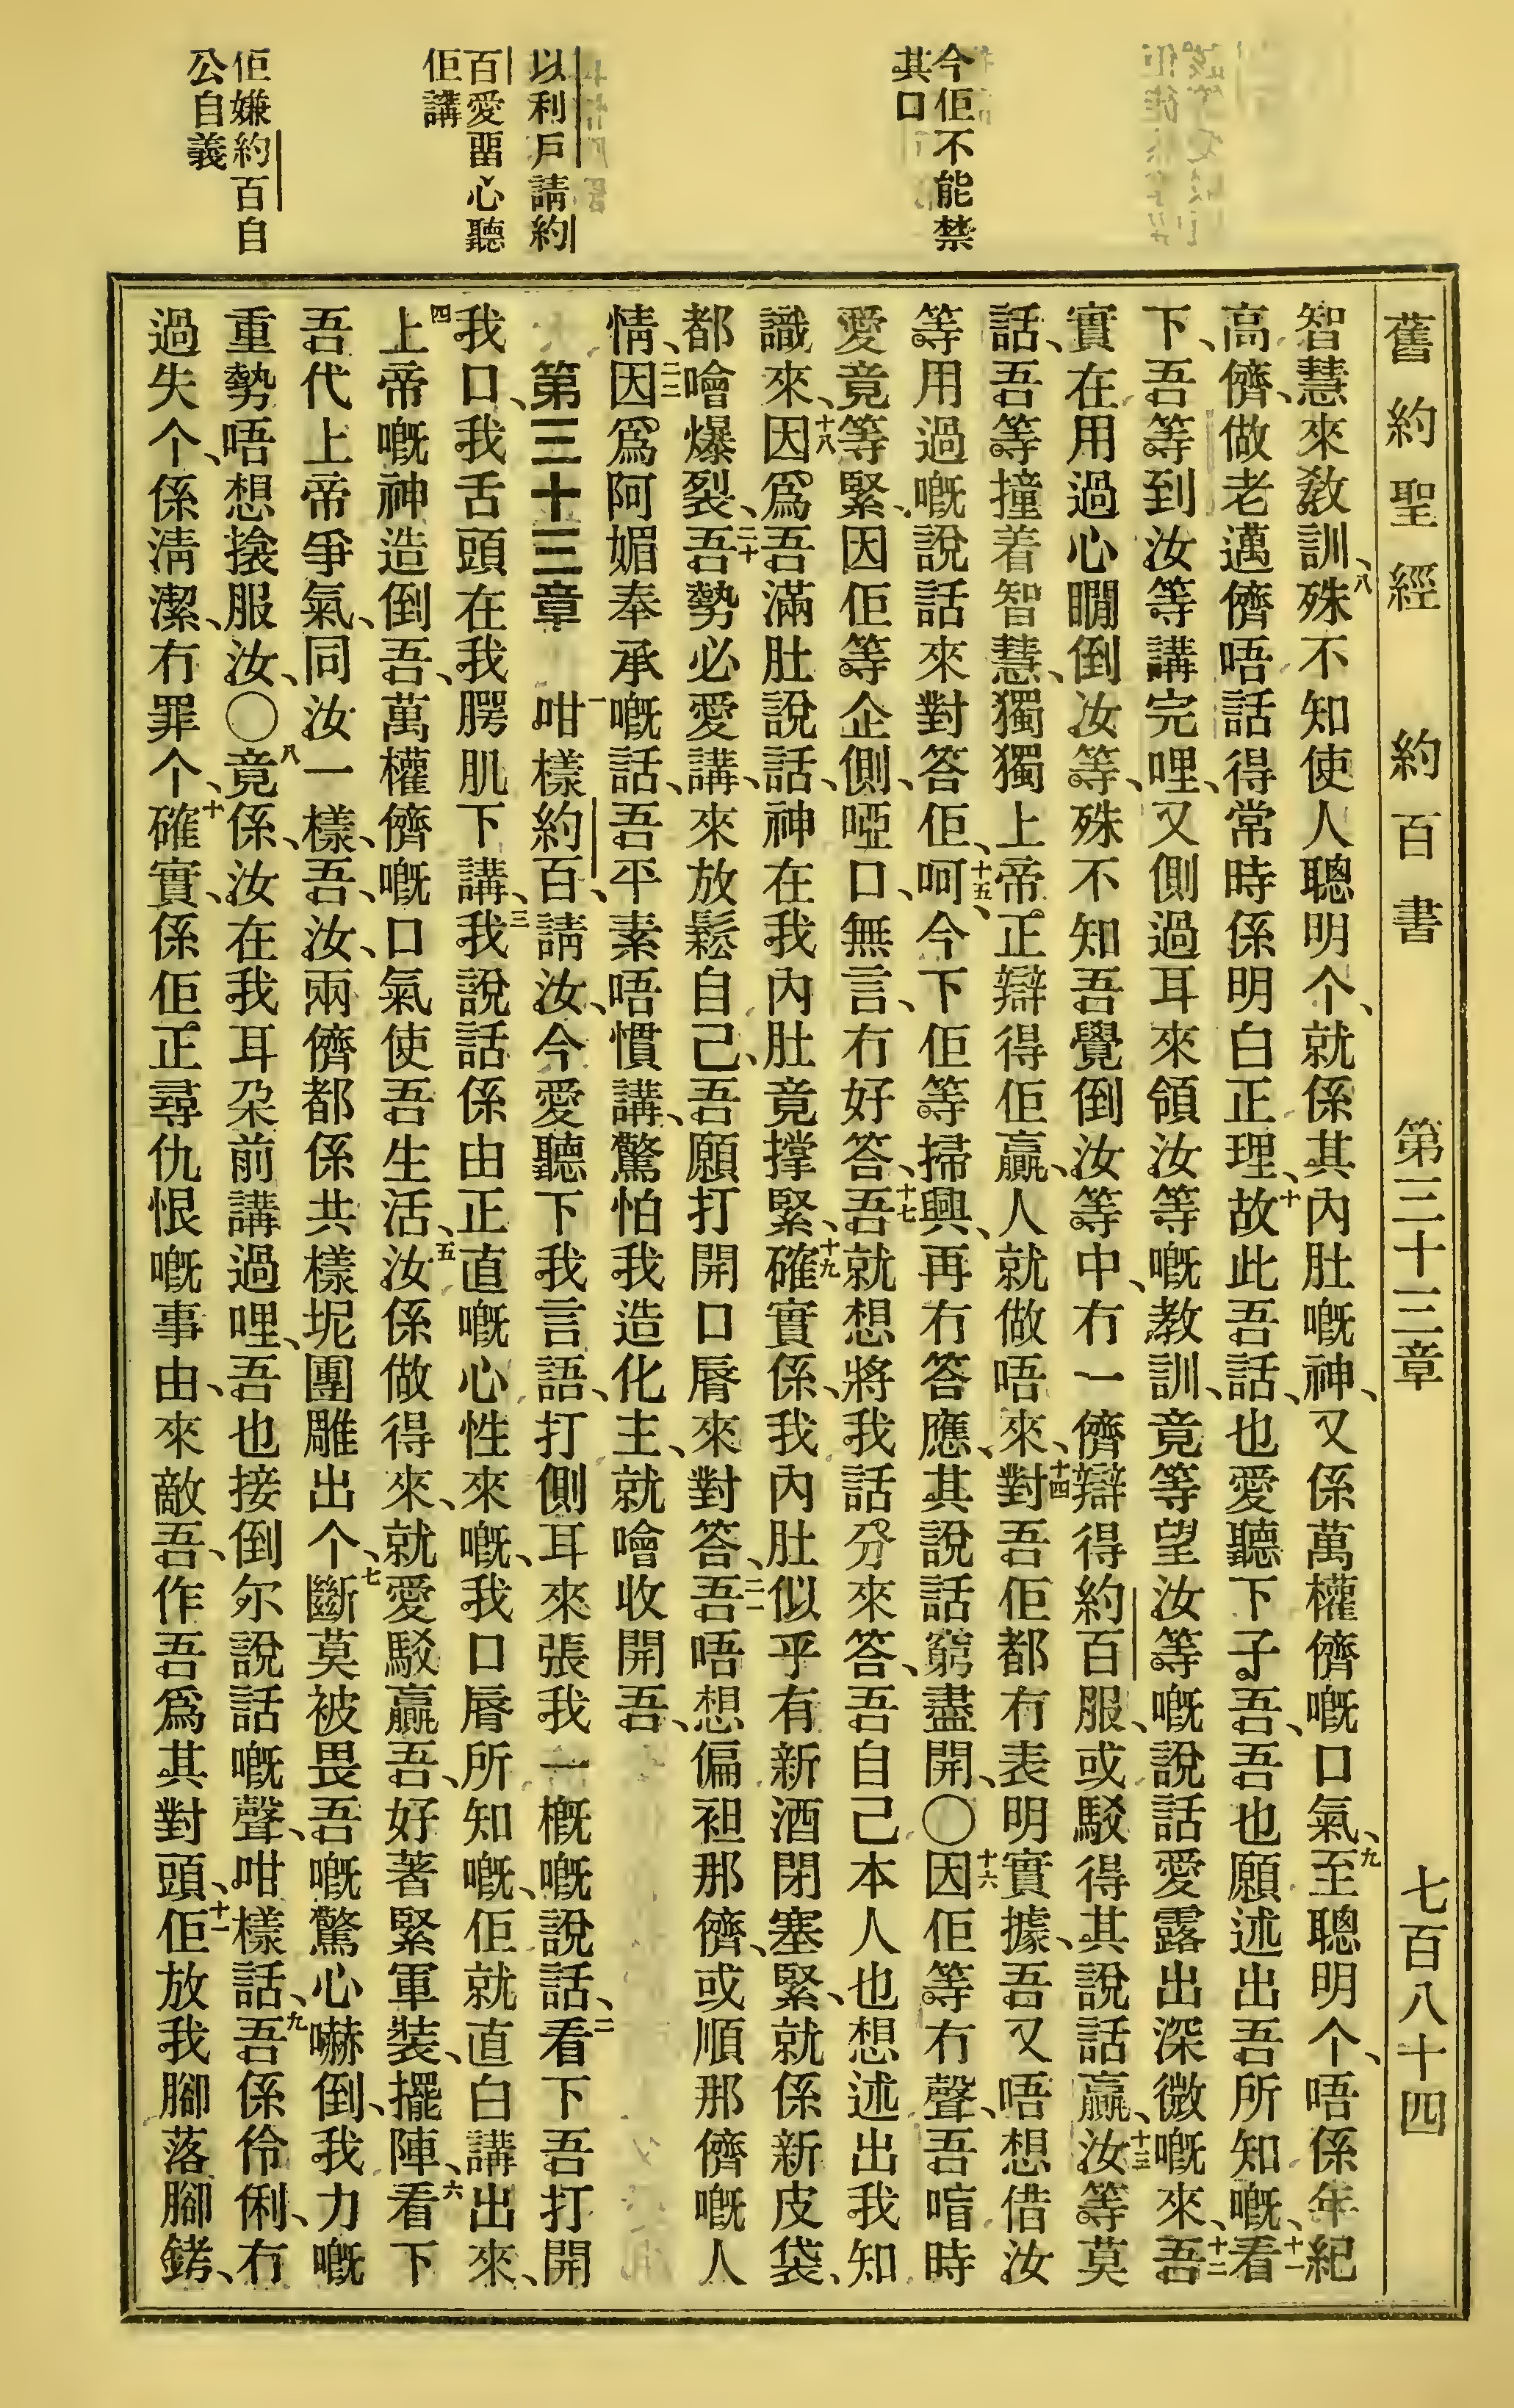 舊約聖經　約百書　第三十三章　七百八十四
今佢不能禁
其口
以利戶請約
百愛畱心聽
佢講
佢嫌約百自
公自義
智慧來教訓、八殊不知使人聰明个、就係其內肚嘅神、又係萬權儕嘅口氣、九至聰明个、唔係年紀
高儕、做老邁儕唔話得常時係明白正理、十故此吾話、也愛聽下子吾、吾也願述出吾所知嘅、十一看
下、吾等到汝等講完哩、又側過耳來領汝等嘅教訓、竟等望汝等嘅說話愛露出深微嘅來、十二吾
實在用過心瞯倒汝等、殊不知吾覺倒汝等中、冇一儕辯得約百服、或駁得其說話贏、十三汝等莫
話、吾等撞着智慧、獨獨上帝正辯得佢贏、人就做唔來、十四對吾佢都冇表明實據、吾又唔想借汝
等用過嘅說話來對答佢、十五呵、今下佢等掃興、再冇答應、其說話窮盡開、〇十六因佢等冇聲、吾喑時
愛竟等緊、因佢等企側、啞口、無言、冇好答、十七吾就想將我話分來答、吾自己本人也想述出我知
識來、十八因爲吾滿肚說話、神在我內肚竟撑緊、十九確實係、我內肚似乎有新酒閉塞緊、就係新皮袋、
都噲爆裂、二十吾勢必愛講、來放鬆自己、吾願打開口脣來對答、二一吾唔想偏袒那儕、或順那儕嘅人
情、二二因爲阿媚奉承嘅話、吾平素唔慣講、驚怕我造化主、就噲收開吾、
第三十三章　一咁樣約百、請汝、今愛聽下我言語、打側耳來張我一概嘅說話、二看下吾打開
我口、我舌頭在我腭肌下講、三我說話係由正直嘅心性來嘅、我口脣所知嘅、佢就直白講出來、
四上帝嘅神造倒吾、萬權儕嘅口氣使吾生活、五汝係做得來、就愛駁贏吾、好著緊軍裝、擺陣、六看下
吾代上帝爭氣、同汝一樣、吾、汝、兩儕都係共樣坭團雕出个、七斷莫被畏吾嘅驚心嚇倒、我力嘅
重勢唔想㨆服汝、〇八竟係、汝在我耳朶前講過哩、吾也接倒尔說話嘅聲、咁樣話、九吾係伶俐、冇
過失个、係淸潔、冇罪个、十確實、係佢正尋仇恨嘅事由、來敵吾、作吾爲其對頭、十一佢放我腳落腳銬、